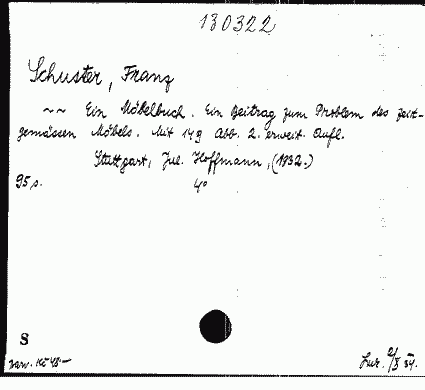 130322
Schuster, Franz
~~ Ein Möbelbuch. Ein Beitrag zum Problem des zeit-
gemässen Möbels. Mit 149 Abb. 2. erweit. Aufl.
Stuttgart, Jul. Hoffmann, (1932.)
95 s. 4°
S